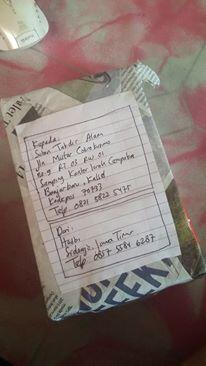 Kepada:
Sutan Takdir Alam
Jln Mistar Cokrokusumo
no.9 RT 03 RW 01
Samping Kantor lurah Cempaka
Banjarbaru, Kalsel
Kodepos 70733
Telp 0821 5822 5475
Dari:
Hasbi
Sidoarjo, Jawa Timur
Telp 0817 5584 6287
EEK